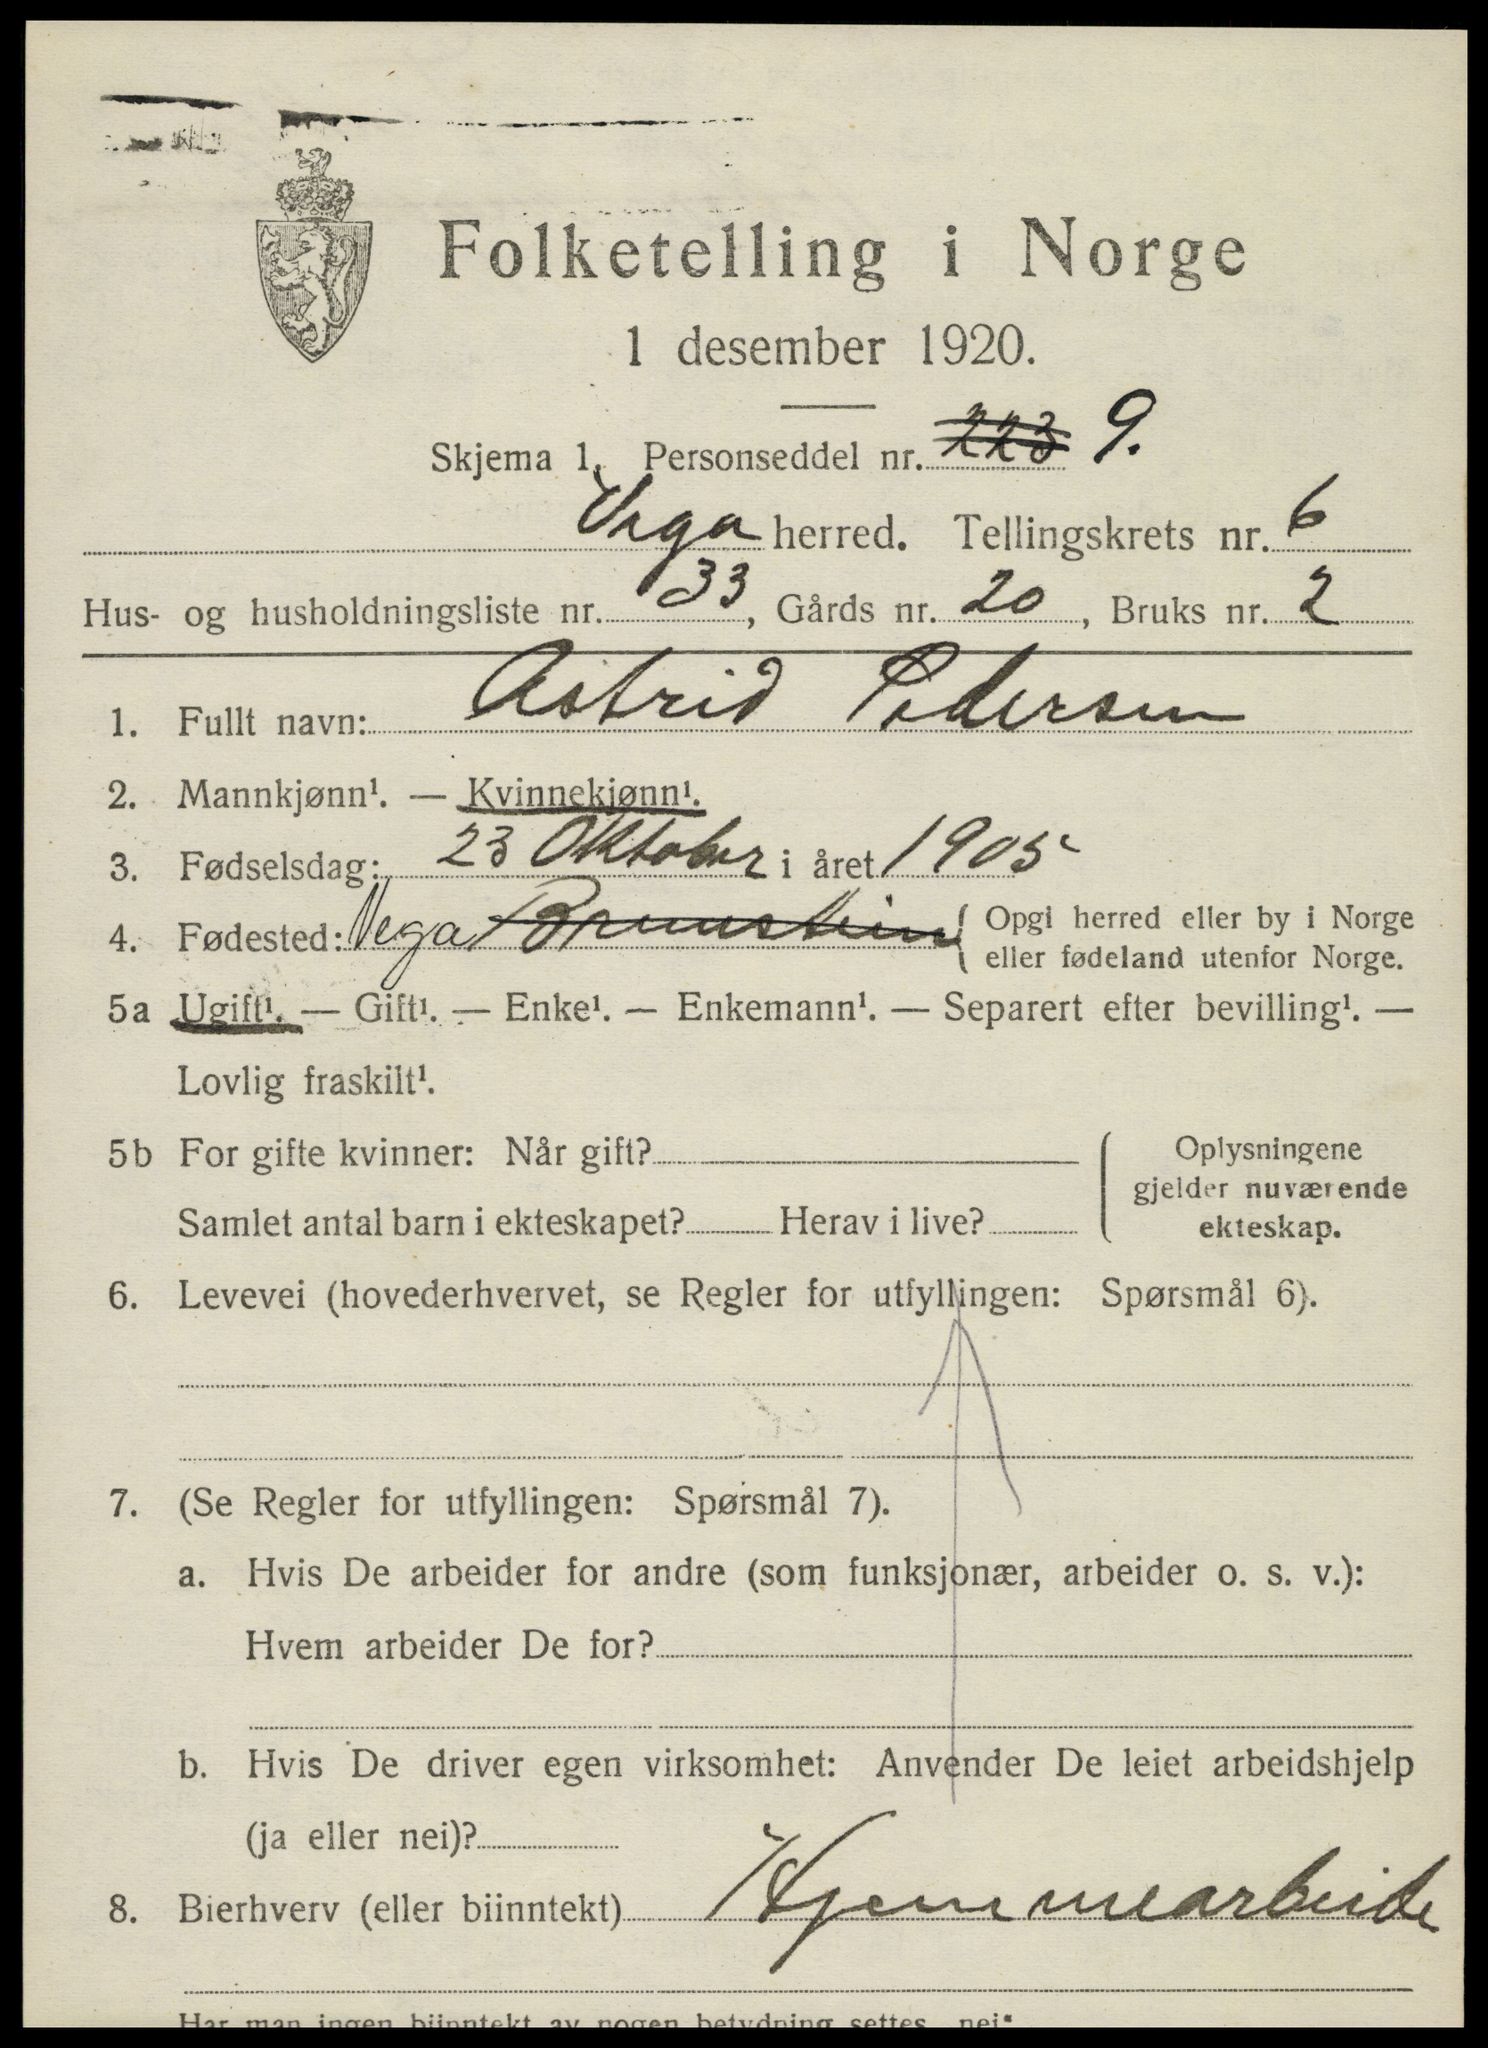 Folketelling i Norge
1 desember 1920.
Skjema 1. Personseddel nr. 223 9.
Vega herred. Tellingskrets nr. 6
Hus- og husholdningsliste nr. 33, Gårds nr. 20, Bruks nr. 2
1. Fullt navn: Astrid Pedersen
2. Mannkjønn¹. — Kvinnekjønn¹.
3. Fødselsdag: 23 Oktober i året 1905
4. Fødested: Vega { Opgi herred eller by i Norge
eller fødeland utenfor Norge.
5a Ugift¹. — Gift¹. — Enke¹. — Enkemann¹. — Separert efter bevilling¹. —
Lovlig fraskilt¹.
5b For gifte kvinner: Når gift?
Samlet antal barn i ekteskapet? Herav i live?
Oplysningene
gjelder nuværende
ekteskap.
6. Levevei (hovederhvervet, se Regler for utfyllingen: Spørsmål 6).
7. (Se Regler for utfyllingen: Spørsmål 7).
a. Hvis De arbeider for andre (som funksjonær, arbeider o. s. v.):
Hvem arbeider De for?
b. Hvis De driver egen virksomhet: Anvender De leiet arbeidshjelp
(ja eller nei)?
8. Bierhverv (eller biinntekt) Hjemmearbeide
Har man ingen biinntekt av nogen betydning settes „nei“